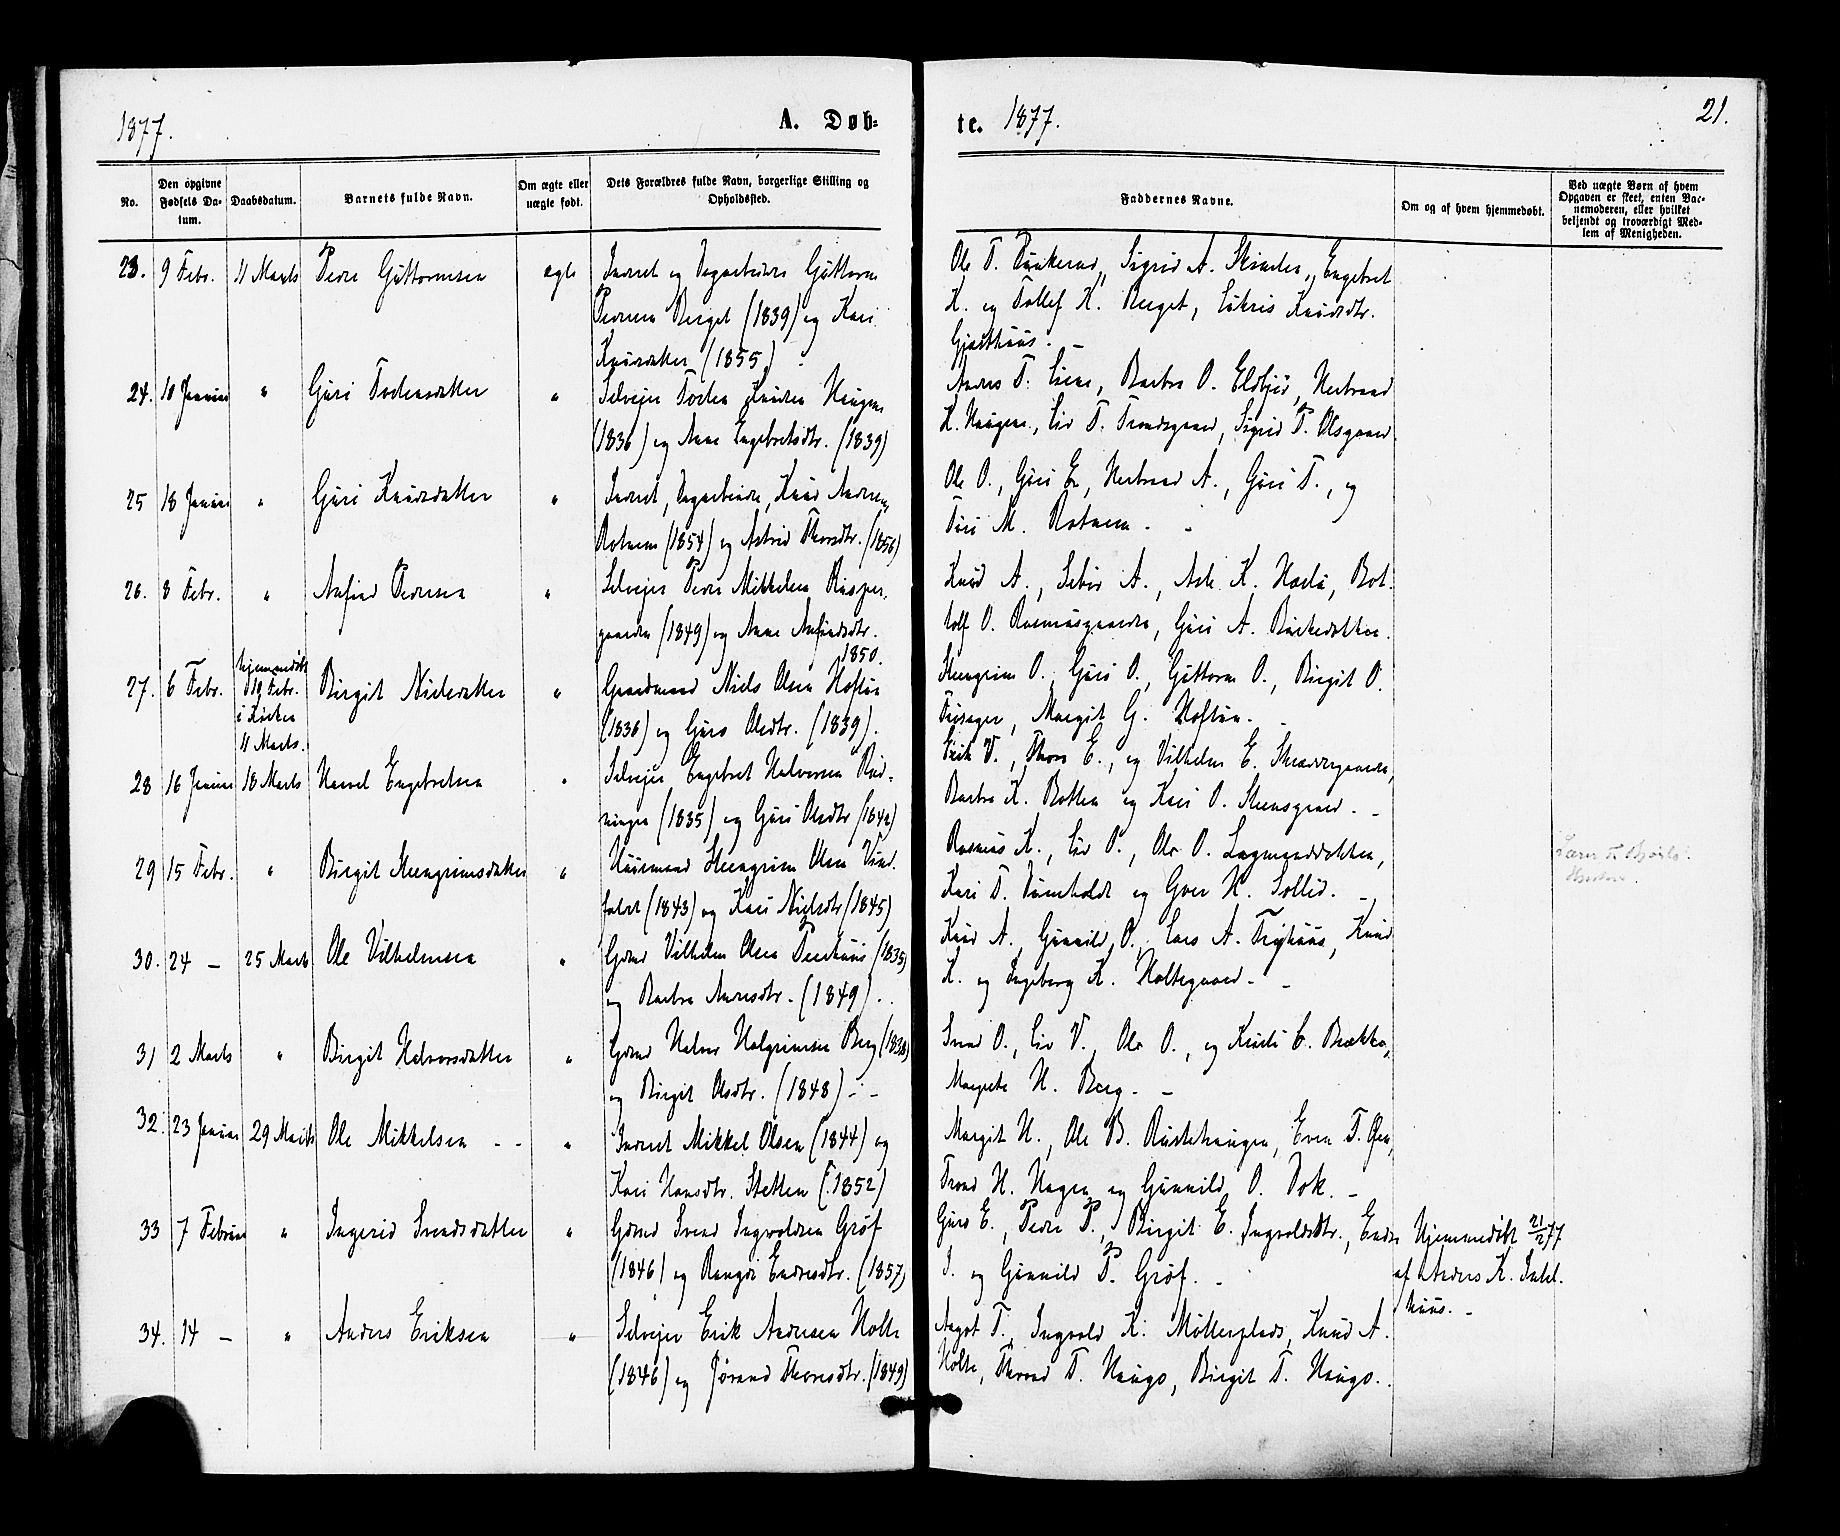 1877.
A. Døb-
te. 1877.
21.
No.
Den opgivne Fødsels Da-tum.
Daabsdatum.
Barnets fulde Navn.
Om ægte eller uægte født.
Dets Forældres fulde Navn, borgerlige Stilling og Opholdssted.
Faddernes Navne.
Om og af hvem hjemmedøbt.
Ved uægte Børn af hvem Opgaven er skeet, enten Bar-nemoderen, eller hvilket bekjendt og troværdigt Med-lem af Menigheden.
23. 9 Febr. 11 Marts Peder Guttormsen ægte Inderst og Dagarbeider Guttorm
Pedersen Berget (1839) og Kari
Knudsdatter (1855).
Ole T. Sigrid A. Engebret
K. og Tollef K. Berget, Knudsdtr.
Gjesthuus. -
24. 10 Januar " Guri Torstensdatter " Selveier Knudsen Haugen
(1836) og Anne Engebretsdtr. (1839)
Anders T. Lien, Barbro O. Herbrand
K. Haugen, Liv T. Trondsgaard, Sigrid P. Olsgaard
25 18 Januar " Guri Knudsdatter " Inderst, Dagarbeider, Knud Andersen
Rotneim (1854) og Astrid Thorsdtr. (1856)
Ole O., Guri E, Herbrand A., Guri T., og
Turi M. Rotneim. -
26. 8 Febr. " Anfind Pedersen " Selveier Peder Mikkelsen
gaarden (1849) og Anne Anfindsdtr.
1850.
Knud A., Sebjør A., Ask. K. Bot-
tolf O. Rasmusgaarden, Guri A.
27. 6 Febr. hjemmedøbt
19 Febr.
i Kirken
11 Marts. Birgit Nielsdatter " Gaardmand Niels Olsen Hoftun
(1836) og Guro Olsdtr. (1839).
Steingrim O., Guri O., Guttorm O., Birgit O.
Margit G. Hoftun. -
28 16 Januar 18 Marts Harvel Engebretsen " Selveier Engebret Halvorsen Rud-
ningen (1835) og Guri Olsdtr (1842)
Erik V., Thora E., og Vilhelm E. Skraddergaarden,
Barbro K. Botten og Kari O. Steensgaard. -
29 15 Febr. " Birgit Steengrimsdatter " Huusmand Steengrim Olsen Vind-
faldet (1843) og Kari Nielsdtr (1845)
Rasmus K., Liv P., Ole O. Lagmandsbakken,
Kari T. og Guri H. Sollid. -
30. 24 - 25 Marts Ole Vilhelmsen " Gdmd Vilhelm Olsen (1835)
og Barbro Andersdtr. (1849). .
Knud A., Gunnild O., Lars A. Frøhuus, Knud
K. og Ingeborg K. Holtegaard. -
31 2 Marts " Birgit Halvorsdatter " Gdmd Halvor Halgrimsen Berg (1838)
og Birgit Olsdtr. (1848) - -
Svend O., Liv V., Ole O., og Kristi C. Brækko,
Margrete H. Berg. -
32. 23 Januar 29 Marts Ole Mikkelsen - - " Inderst Mikkel Olsen (1844) og
Kari Hansdtr. Stetten (1852)
Margit H., Ole B. Rustehaugen, Even T. Øen,
Trond H. Hagen og Gunnild O. Dok. -
33 7 Februar " Ingerid Svendsdatter " Gdmd Svend Ingvoldsen Grøf
(1846) og Rangdi Endresdtr. (1857)
Guro E., Peder P., Birgit E. Ingvoldsdtr., Endre
I. og Gunnild P. Grøf. -
Hjemmedøbt 21/2 77
af Anders K.
huus. -
34. 14 - " Anders Eriksen " Selveier Erik Andersen Holte
(1846) og Jørand Thorsdtr. (1849)
Aagot T., Ingvold K. Møllerplads, Knud A.
Holte, Thrond T. Haugo, Birgit T. Haugo.